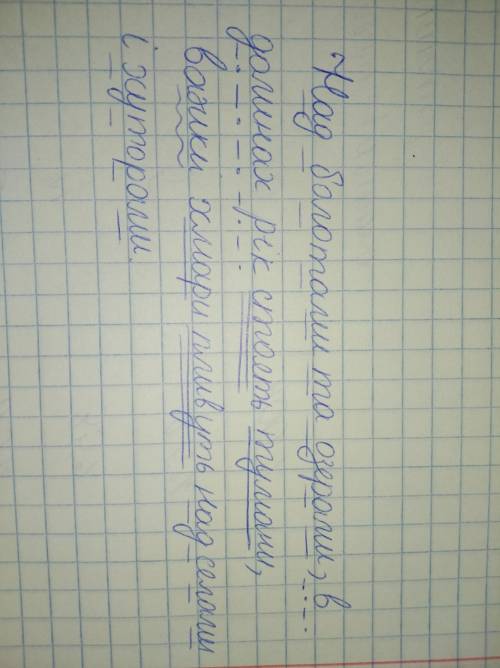 Над болотами та озерами, в
долинах рік стоять тумани,
важки хмари пливуть над селами
і хуторами.